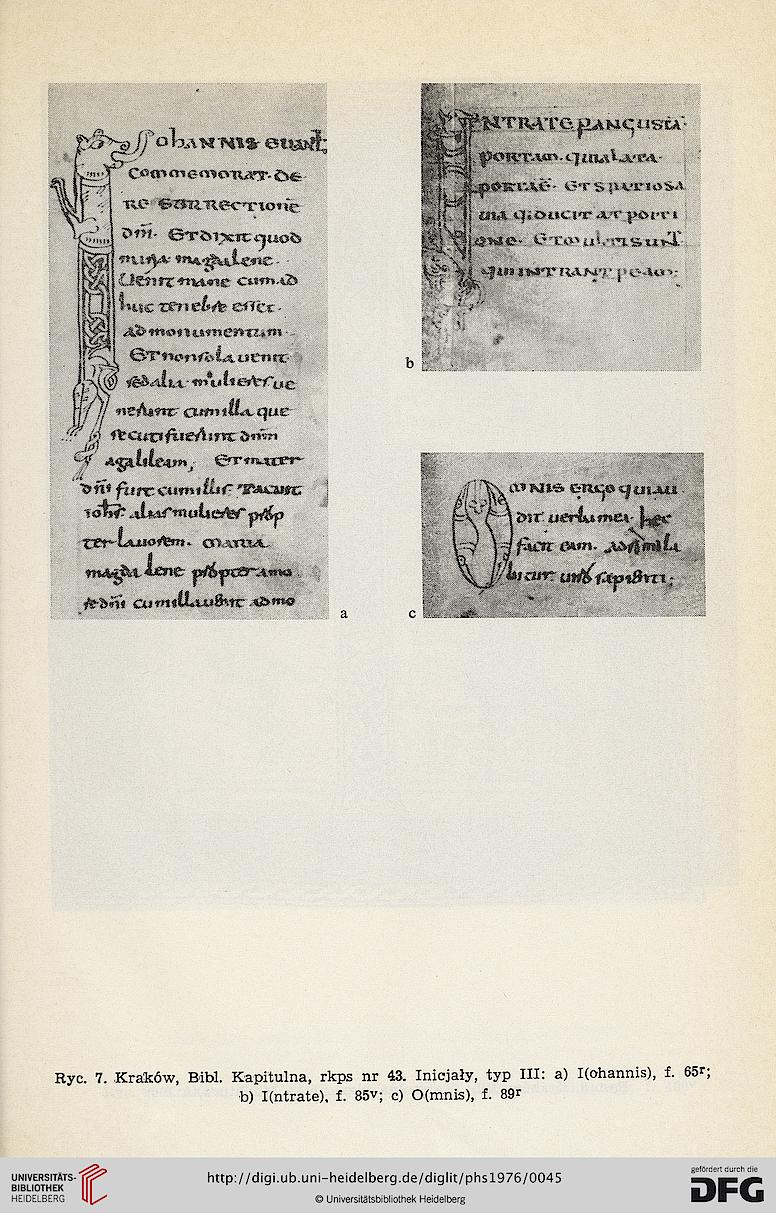 IohANNIS EUANḠ
COMMEMORAT. DE
RE SURRECTIONE
dn̄i. ET DIXIT quod
maria magdalene.
Uenit mane cum ad
huc tenebre esset.
ad monumentum.
ET non sola uenit
sed alia mulieres ue
nerunt cum illa que
secuti fuerunt dnm
a galileam, ET mater
dn̄i fuit cum illis. Tacuit
iohs. alias mulieres prop
ter lauorem. MARIA
magdalene propter amo
re dn̄i cum illa uenit ad mo
a
INTRATE P ANGUSTA
PORTAM. quia lata
portae. ET SPATIOSA
uia q; ducit at porti
one. ET multi sunT
qui INTRANT pe eam;
b
OMNIS ERGO qui au
dit uerba mea hec
facit eam. adsimila
bitur uiro sapienti;
c
Ryc. 7. Kraków, Bibl. Kapitulna, rkps nr 43. Inicjały, typ III: a) I(ohannis), f. 65r;
b) I(ntrate), f. 85v; c) O(mnis), f. 89r
UNIVERSITÄTS-
BIBLIOTHEK
HEIDELBERG
http://digi.ub.uni-heidelberg.de/diglit/phs1976/0045
© Universitätsbibliothek Heidelberg
gefördert durch die
DFG